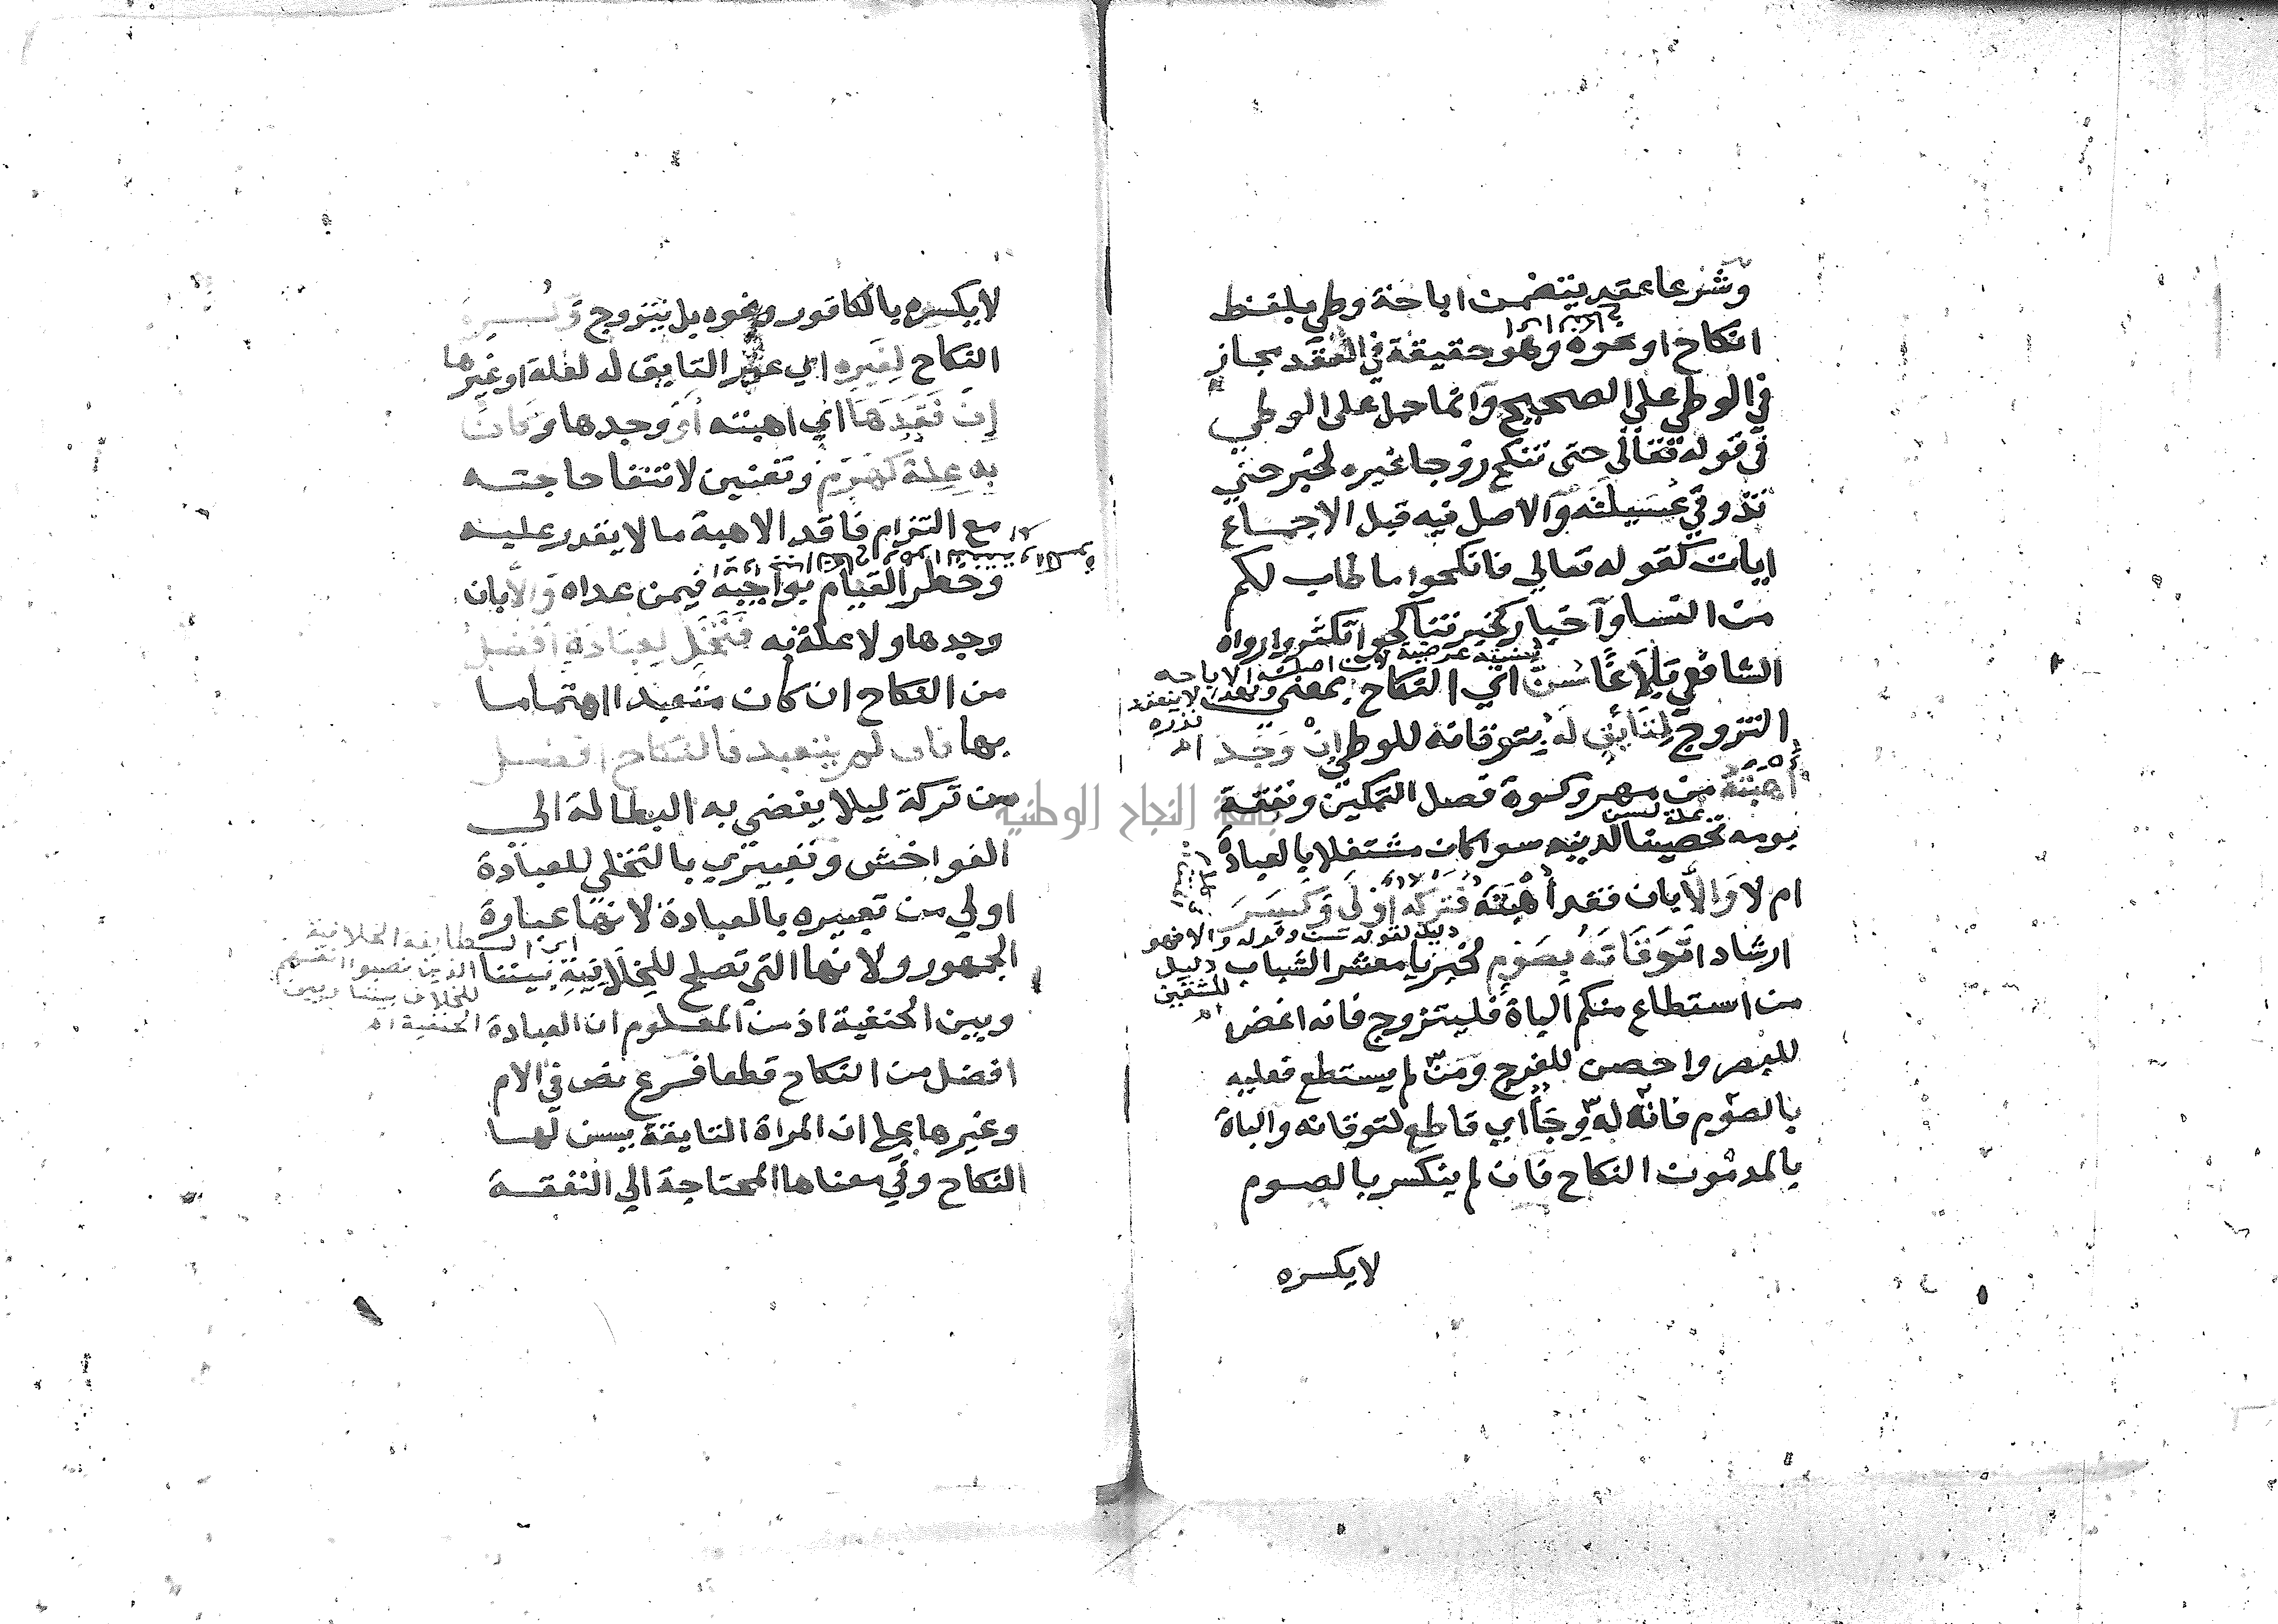 وشرعا عقد يتضمن اباحة وطي بلفظ
انكاح او نحوه وهو حقيقة في العقد مجاز
في الوطي علي الصحيح وانما حمل على الوطي
في قوله تعالي حتى تنكح زوجا غيره لخبر حتي
تذوقي عسيلته والاصل فيه قبل الاجماع
ايات كقوله تعالي فانكحوا ما طاب لكم
من النسا واخبار كخبر تناكحوا تكثروا رواه
الشافعي بلاغا سن اي النكاح بمعني
التزوج لتائق له بتوقانه للوطي إن وجد
أهبته من مهر وكسوة فصل التمكين ونفقة
يومه تحصينا لدينه سوا كان مشتغلا بالعبادة
ام لا والا بان فقد أهبته فتركه أولى وكسر
ارشادا توقانه بصوم لخبر يا معشر الشباب
من استطاع منكم الباة فليتزوج فانه اغض
للبصر واحصن للفرج ومن لم يستطع فعليه
بالصوم فانه له وجا اي قاطع لتوقانه والباة
بالمد مون النكاح فان لم ينكسر بالصوم
لا يكسره
سنيته عرضية لان اصله الاباحه
ولهذا لا ينعقد
نذره
اه
علة لسن
دليل لقوله سن وقوله والا فهو
دليل
للشقين
اه
جامعة النجاح الوطنية
لا يكسره بالكافور ونحوه بل يتزوج وكره
النكاح لغيره اي غير التايق له لعلة او غيرها
إن فقدها اي اهبته أو وجدها وكان
به علة كهرم وتعنين لانتفا حاجته
مع التزام فاقد الاهبة ما لا يقدر عليه
وخطر القيام بواجبه فيمن عداه والا بان
وجدها ولا علة به فتخل لعبادة افضل
من النكاح ان كان متعبدا اهتماما
بها فان لم يتعبد فالنكاح افضل
من تركه ليلا يفضي به البطالة الي
الفواحش وتعبيري بالتخلي للعبادة
اولي من تعبيره بالعبادة لانها عبارة
الجمهور ولانها التي تصلح للخلافية بيننا
وبين الحنفية اذ من المعلوم ان العبادة
افضل من النكاح قطعا فرع نص في الام
وغيرها علي ان المراة التايقة يسن لها
النكاح وفي معناها المحتاجة الي النفقة
اي الطايفة الخلافية
الذين نصبوا انفسهم
للخلاف بيننا وبين
الحنفية اه